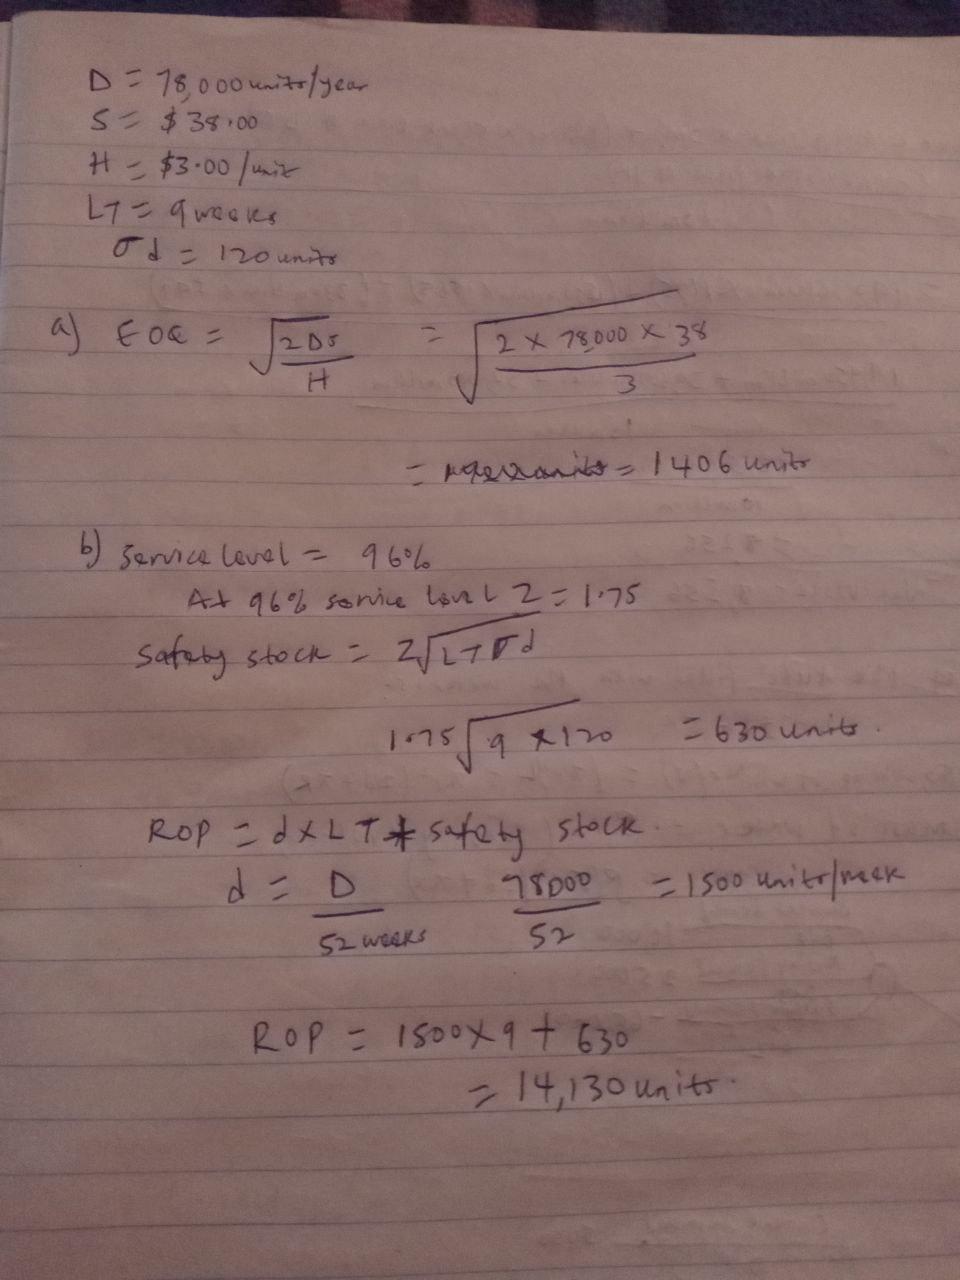 D = 78,000 units/year
S = $38.00
H = $3.00/unit
LT = 9 weeks
σd = 120 units
a) EOQ = √2DS/H = √2 × 78,000 × 38/3
= 1406 units
b) Service level = 96%
At 96% service level Z = 1.75
Safety stock = Z√LT σd
1.75√9 × 120 = 630 units.
ROP = d × LT + safety stock.
d = D/52 weeks 78000/52 = 1500 units/week
ROP = 1500 × 9 + 630
= 14,130 units.